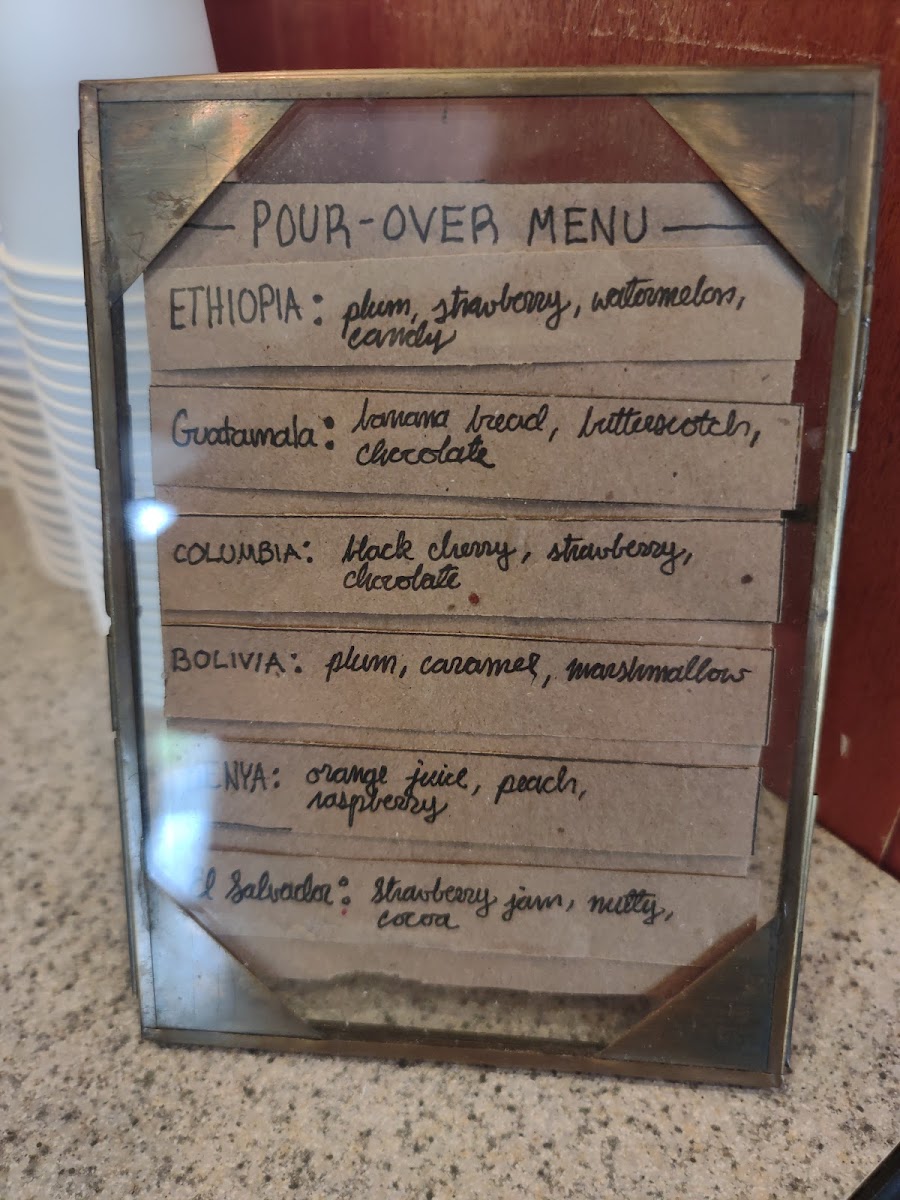 — POUR-OVER MENU —
ETHIOPIA: plum, strawberry, watermelon,
candy
Guatamala: banana bread, butterscotch,
chocolate
COLUMBIA: black cherry, strawberry,
chocolate
BOLIVIA: plum, caramel, marshmallow
KENYA: orange juice, peach,
raspberry
El Salvador: strawberry jam, nutty,
cocoa